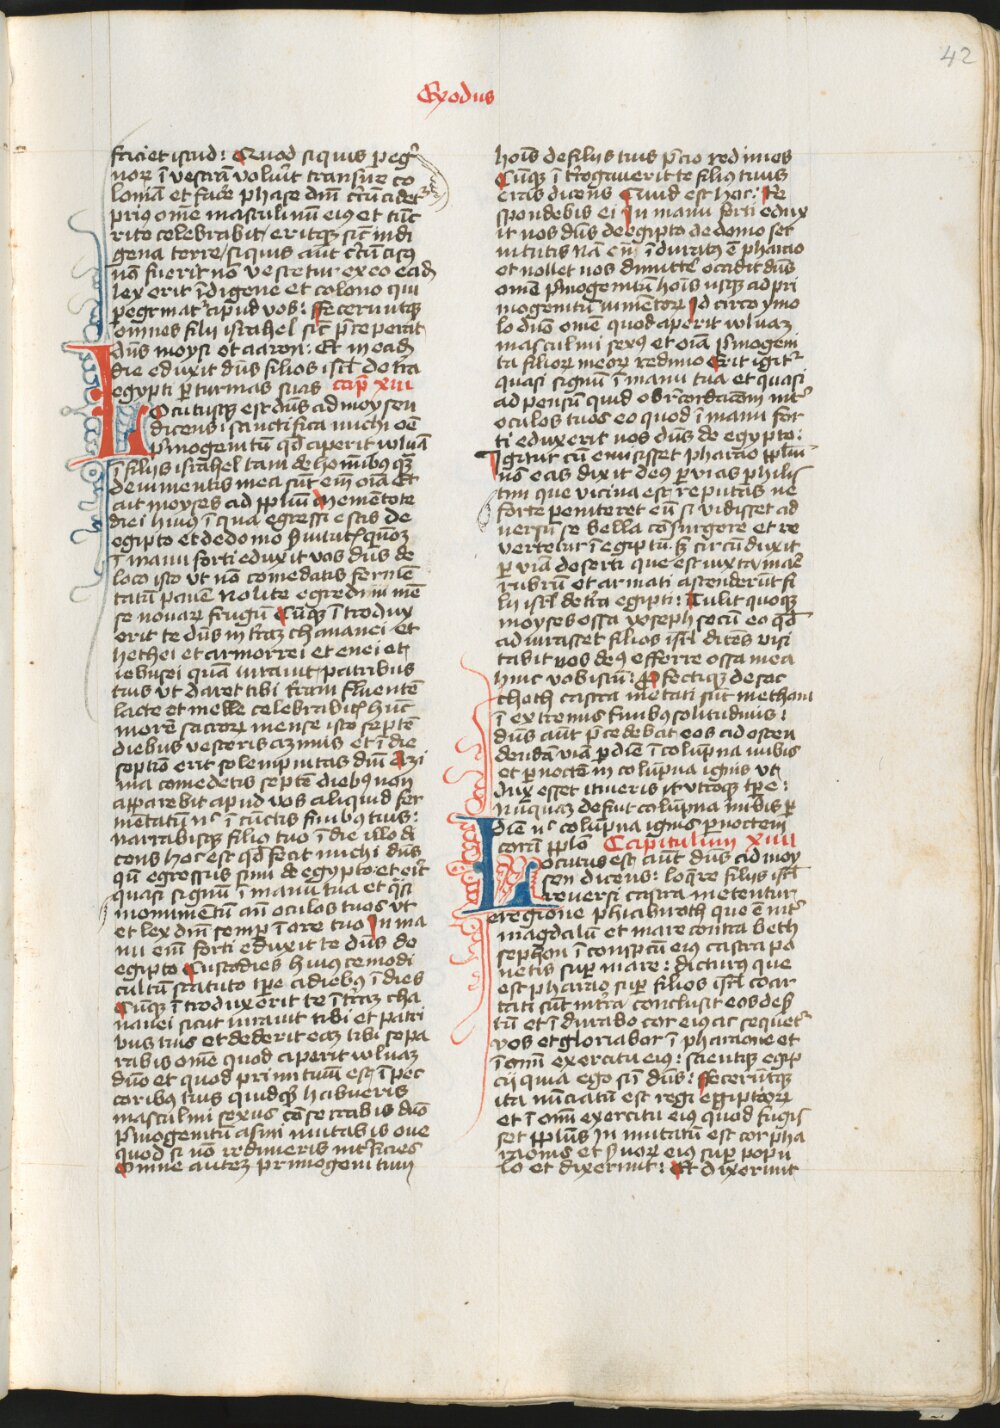 42
Exodus
faciet istud: Quod si quis pegͥ
noꝝ ī vestrā volūit transire co
loniā et facͤe phase dm̄ cͥcūcidet
priꝰ om̄e masculinū eiꝰ et tūc
rite celebrabit eritqꝫ sic̄ indi
gena terre / si quis aūt cͥcūcisꝰ
nō fuerit nō vescetur ex eo eadꝫ
lex erit īdigene et colono qui
pegͥnatᷣ apud vos: ffeceruntqꝫ
omnes filij israhel sic̄ p̄ceperat
dūs moysi et aaron: Et in eadꝫ
die eduxit dūs filios isrl̄ de tr̄a
egypti ꝑ turmas suas cap̄ xiii
Locutusqꝫ est dūs ad moysen
dicens: sanctifica michi oē
pͥmogenitū qd̄ aperit vuluā
ī filijs israhel tam de hoīībꝰ qꝫ̄
de iumentis mea sūt eīm oīa Et
ait moyses ad pplūm Mementote
diei huiꝰ ī qua egressi estis de
egipto et de domo ẜuitutꝭ qm̄
ī manu forti eduxit vos dūs de
loco isto vt nō comedatis fermē
tatū panē Nolite egredimini mē
se nouaꝝ frugū Cūqꝫ ītrodux
erit te dūs in trāꝫ chananei et
hethei et amorrei et euei et
iebusei quā iurauit patribus
tuis vt daret tibi trām fluentē
lacte et melle celebrabitꝭ hūc
morē sacroꝝ mense isto septē
diebus vesceris azimis et ī die
septīo erit solempnitas dm̄ Azi
ma comedetis septē diebꝰ non
apparebit apud vos aliquid fer
mētatū nͨ ī cūctis finibꝰ tuis:
narrabisqꝫ filio tuo ī die illo di
cens hoc est qd̄ fecit michi dūs
qn̄ egressus sum de egypto et erͥt
quasi signū ī manu tua et qͣsi
monumētū an̄ oculos tuos vt
et lex dm̄ semꝑ ī ore tuo In ma
nu em̄ forti eduxit te dūs de
egipto Custodies huiuscemodi
cultū statuto tꝑe a diebꝰ ī dies
Cūqꝫ ītroduxerit te ī trāꝫ cha
nanei sicut iurauit tibi et patri
bus tuis et dederit eaꝫ tibi sepa
rabis om̄e quod aperit vuluaꝫ
dūo et quod primitiuū est ī pec
coribus tuis quidqͥd habueris
masculini sexus cōsecrabis dūo
pͥmogenitū asini mutabis oue
quod si nō redimeris intͤficies
Omne autēꝫ primogenitum
hoīs de filijs tuis p̄cio redimes
Cūqꝫ ītͤrogauerit te filiꝰ tuus
cras dicens Quid est hoc: Re
spondebis ei In manu forti edux
it nos dūs de egipto de domo ser
uitutis nā cū īduratꝰ ē pharao
et nollet nos dimittͤe occidit dūs
om̄e pͥmogenitū hoīs usqꝫ ad pri
mogenitū iumētoꝝ Id circo ymo
lo dūo om̄e quod aperit vuluaꝫ
masculini sexꝰ et oīa pͥmogeni
ta filioꝝ meoꝝ redimo Erit igitᷣ
quasi signū ī manu tua et quasi
ad pensū quid ob recordacōem intͤ
oculos tuos eo quod ī manu for
ti eduxerit nos dūs de egypto:
Igitur cū emisisset pharao pplm̄
nō eas duxit deꝰ ꝑ vias philis
tim que vicina est reputās ne
forte peniteret eū si vidisset ad
uersū se bella cōsurgere et re
verteretur ī egiptū: sꝫ circūduxit
ꝑ viā deserti que est iuxta marͤ
rubrū et armati ascenderūt fi
lij isrl̄ de tr̄a egipti: Tulit quoqꝫ
moyses ossa yoseph secū eo qd̄
adiurasset filios isrl̄ dicēs visi
tabit vos deꝰ efferre ossa mea
hinc vobiscū: Pͦfectiqꝫ de soc
choth castra metati sūt metham
ī extremis finibꝰ solitudinis:
dūs aūt p̄cedebat eos ad osten
dendā viā ꝑ diē ī colūpna nubis
et ꝑ noctē in colūpna ignis vt
dux esset itineris vtroqꝫ tꝑe:
nūquaꝫ defuit colūpna nubis ꝑ
diē nͨ colūpna ignis ꝑ noctem
corā pplo Capitulum xiiii
Locutus est aūt dūs ad moy
sen dicens: loqͤre filijs isrl̄
reuersi castra metentur
e regione phiahiroth que ē intͤ
magdalū et mare contra beth
sephon ī conspc̄tu eiꝰ castra po
netis suꝑ mare: dicturꝰ que
est pharao suꝑ filios isrl̄ coar
tati sūt intra conclusit eos des
tū et īdurabo cor eiꝰ ac sequetᷣ
vos et gloriabor ī pharaone et
ī om̄i exercitu eiꝰ: scientqꝫ egip
cij quia ego sū dūs: ffecerūtqꝫ
ita nūciatū est regi egiptioꝝ
et ī om̄i exercitu eiꝰ quod fugis
set pplūs Inmutatū est cor pha
raonis et ẜuoꝝ eiꝰ suꝑ popu
lo et dixerunt: Et dixerunt